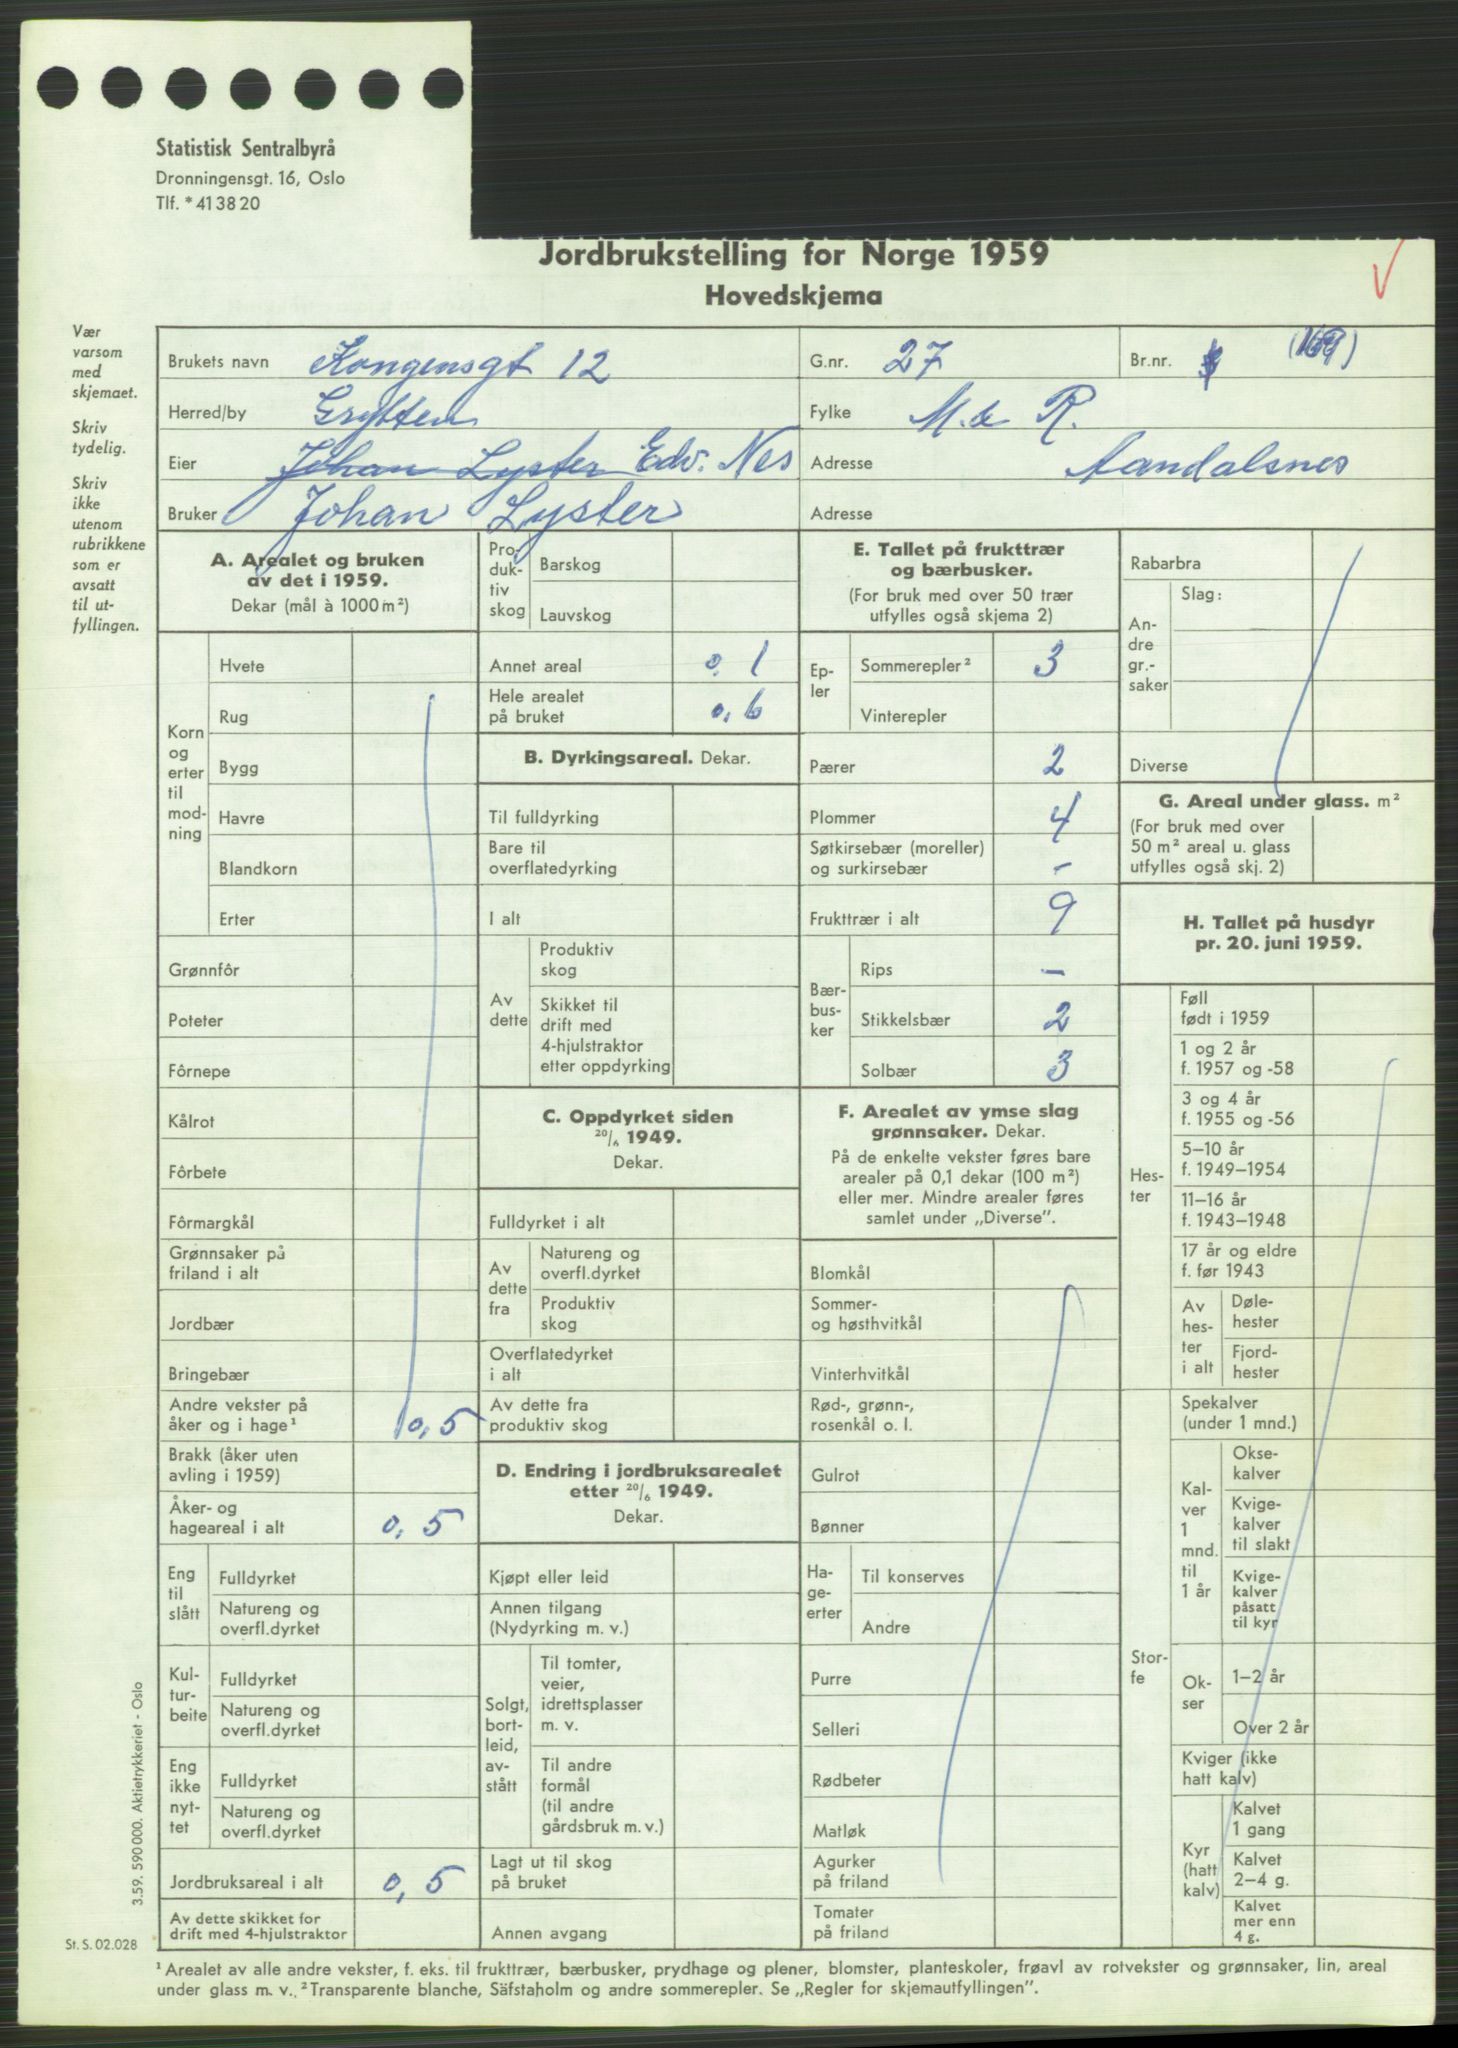 Statistisk Sentralbyrå
Dronningensgt. 16, Oslo
Tlf. * 41 38 20
Jordbrukstelling for Norge 1959
Hovedskjema
Vær
varsom
med
skjemaet.
Skriv
tydelig.
Skriv
ikke
utenom
rubrikkene
som er
avsatt
til ut-
fyllingen.
Brukets navn Kongensgt 12 G.nr. 27 Br.nr.
Herred/by Grytten Fylke M. & R.
Eier Johan Lyster Edv. Nes Adresse Aandalsnes
Bruker Johan Lyster Adresse
A. Arealet og bruken
av det i 1959.
Dekar (mål à 1000 m²)
Korn
og
erter
til
mod-
ning
Hvete
Rug
Bygg
Havre
Blandkorn
Erter
Grønnfôr
Poteter
Fôrnepe
Kålrot
Fôrbete
Fôrmargkål
Grønnsaker på
friland i alt
Jordbær
Bringebær
Andre vekster på
åker og i hage¹ 0,5
Brakk (åker uten
avling i 1959)
Åker- og
hageareal i alt 0,5
Eng
til
slått
Fulldyrket
Natureng og
overfl.dyrket
Kul-
tur-
beite
Fulldyrket
Natureng og
overfl.dyrket
Eng
ikke
nyt-
tet
Fulldyrket
Natureng og
overfl.dyrket
Jordbruksareal i alt 0,5
Av dette skikket for
drift med 4-hjulstraktor
Pro-
duk-
tiv
skog
Barskog
Lauvskog
Annet areal 0,1
Hele arealet
på bruket 0,6
B. Dyrkingsareal. Dekar.
Til fulldyrking
Bare til
overflatedyrking
I alt
Av
dette
Produktiv
skog
Skikket til
drift med
4-hjulstraktor
etter oppdyrking
C. Oppdyrket siden
20/6 1949.
Dekar.
Fulldyrket i alt
Av
dette
fra
Natureng og
overfl.dyrket
Produktiv
skog
Overflatedyrket
i alt
Av dette fra
produktiv skog
D. Endring i jordbruksarealet
etter 20/6 1949.
Dekar.
Kjøpt eller leid
Annen tilgang
(Nydyrking m. v.)
Solgt,
bort-
leid,
av-
stått
Til tomter,
veier,
idrettsplasser
m. v.
Til andre
formål
(til andre
gårdsbruk m. v.)
Lagt ut til skog
på bruket
Annen avgang
E. Tallet på frukttrær
og bærbusker.
(For bruk med over 50 trær
utfylles også skjema 2)
Ep-
ler
Sommerepler² 3
Vinterepler
Pærer 2
Plommer 4
Søtkirsebær (moreller)
og surkirsebær -
Frukttrær i alt 9
Bær-
bus-
ker
Rips -
Stikkelsbær 2
Solbær 3
F. Arealet av ymse slag
grønnsaker. Dekar.
På de enkelte vekster føres bare
arealer på 0,1 dekar (100 m²)
eller mer. Mindre arealer føres
samlet under „Diverse”.
Blomkål
Sommer-
og høsthvitkål
Vinterhvitkål
Rød-, grønn-,
rosenkål o. l.
Gulrot
Bønner
Ha-
ge-
erter
Til konserves
Andre
Purre
Selleri
Rødbeter
Matløk
Agurker
på friland
Tomater
på friland
Rabarbra
An-
dre
gr.-
saker
Slag:
Diverse
G. Areal under glass. m²
(For bruk med over
50 m² areal u. glass
utfylles også skj. 2)
H. Tallet på husdyr
pr. 20. juni 1959.
Hes-
ter
Føll
født i 1959
1 og 2 år
f. 1957 og -58
3 og 4 år
f. 1955 og -56
5–10 år
f. 1949–1954
11–16 år
f. 1943–1948
17 år og eldre
f. før 1943
Av
hes-
ter
i alt
Døle-
hester
Fjord-
hester
Stor-
fe
Spekalver
(under 1 mnd.)
Kal-
ver
1
mnd.
til
1 år
Okse-
kalver
Kvige-
kalver
til slakt
Kvige-
kalver
påsatt
til kyr
Ok-
ser
1–2 år
Over 2 år
Kviger (ikke
hatt kalv)
Kyr
(hatt
kalv)
Kalvet
1 gang
Kalvet
2–4 g.
Kalvet
mer enn
4 g.
3.59. 590 000. Aktietrykkeriet - Oslo
St. S. 02.028
¹ Arealet av alle andre vekster, f. eks. til frukttrær, bærbusker, prydhage og plener, blomster, planteskoler, frøavl av rotvekster og grønnsaker, lin, areal
under glass m. v. ² Transparente blanche, Säfstaholm og andre sommerepler. Se „Regler for skjemautfyllingen”.